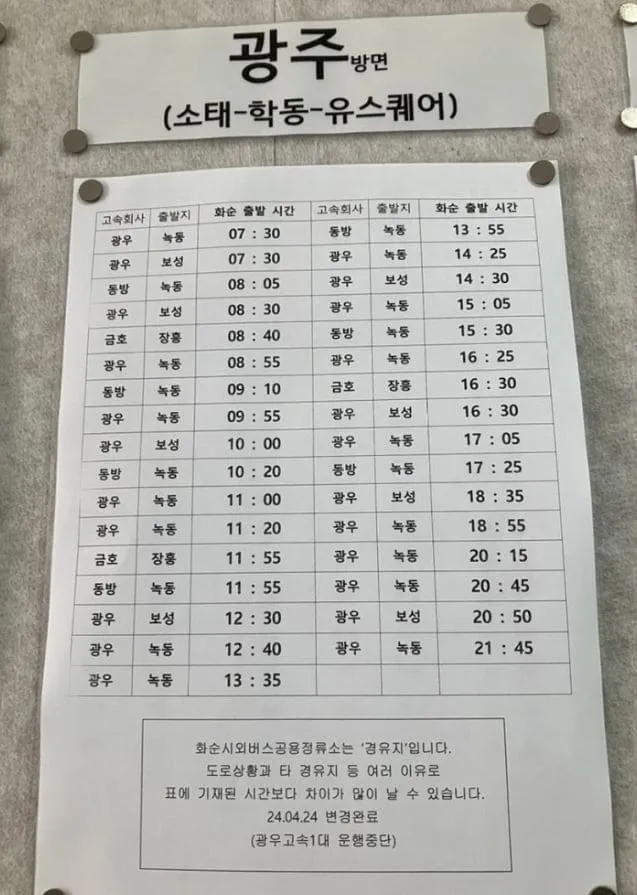 광주방면
(소태-학동-유스퀘어)
고속회사 출발지 화순 출발 시간 고속회사 출발지 화순 출발 시간
광우 녹동 07 : 30 동방 녹동 13 : 55
광우 보성 07 : 30 광우 녹동 14 : 25
동방 녹동 08 : 05 광우 보성 14 : 30
광우 보성 08 : 30 광우 녹동 15 : 05
금호 장흥 08 : 40 동방 녹동 15 : 30
광우 녹동 08 : 55 광우 녹동 16 : 25
동방 녹동 09 : 10 금호 장흥 16 : 30
광우 녹동 09 : 55 광우 보성 16 : 30
광우 보성 10 : 00 광우 녹동 17 : 05
동방 녹동 10 : 20 동방 녹동 17 : 25
광우 녹동 11 : 00 광우 보성 18 : 35
광우 녹동 11 : 20 광우 녹동 18 : 55
금호 장흥 11 : 55 광우 녹동 20 : 15
동방 녹동 11 : 55 광우 녹동 20 : 45
광우 보성 12 : 30 광우 보성 20 : 50
광우 녹동 12 : 40 광우 녹동 21 : 45
광우 녹동 13 : 35
화순시외버스공용정류소는 '경유지'입니다.
도로상황과 타 경유지 등 여러 이유로
표에 기재된 시간보다 차이가 많이 날 수 있습니다.
24.04.24 변경완료
(광우고속1대 운행중단)